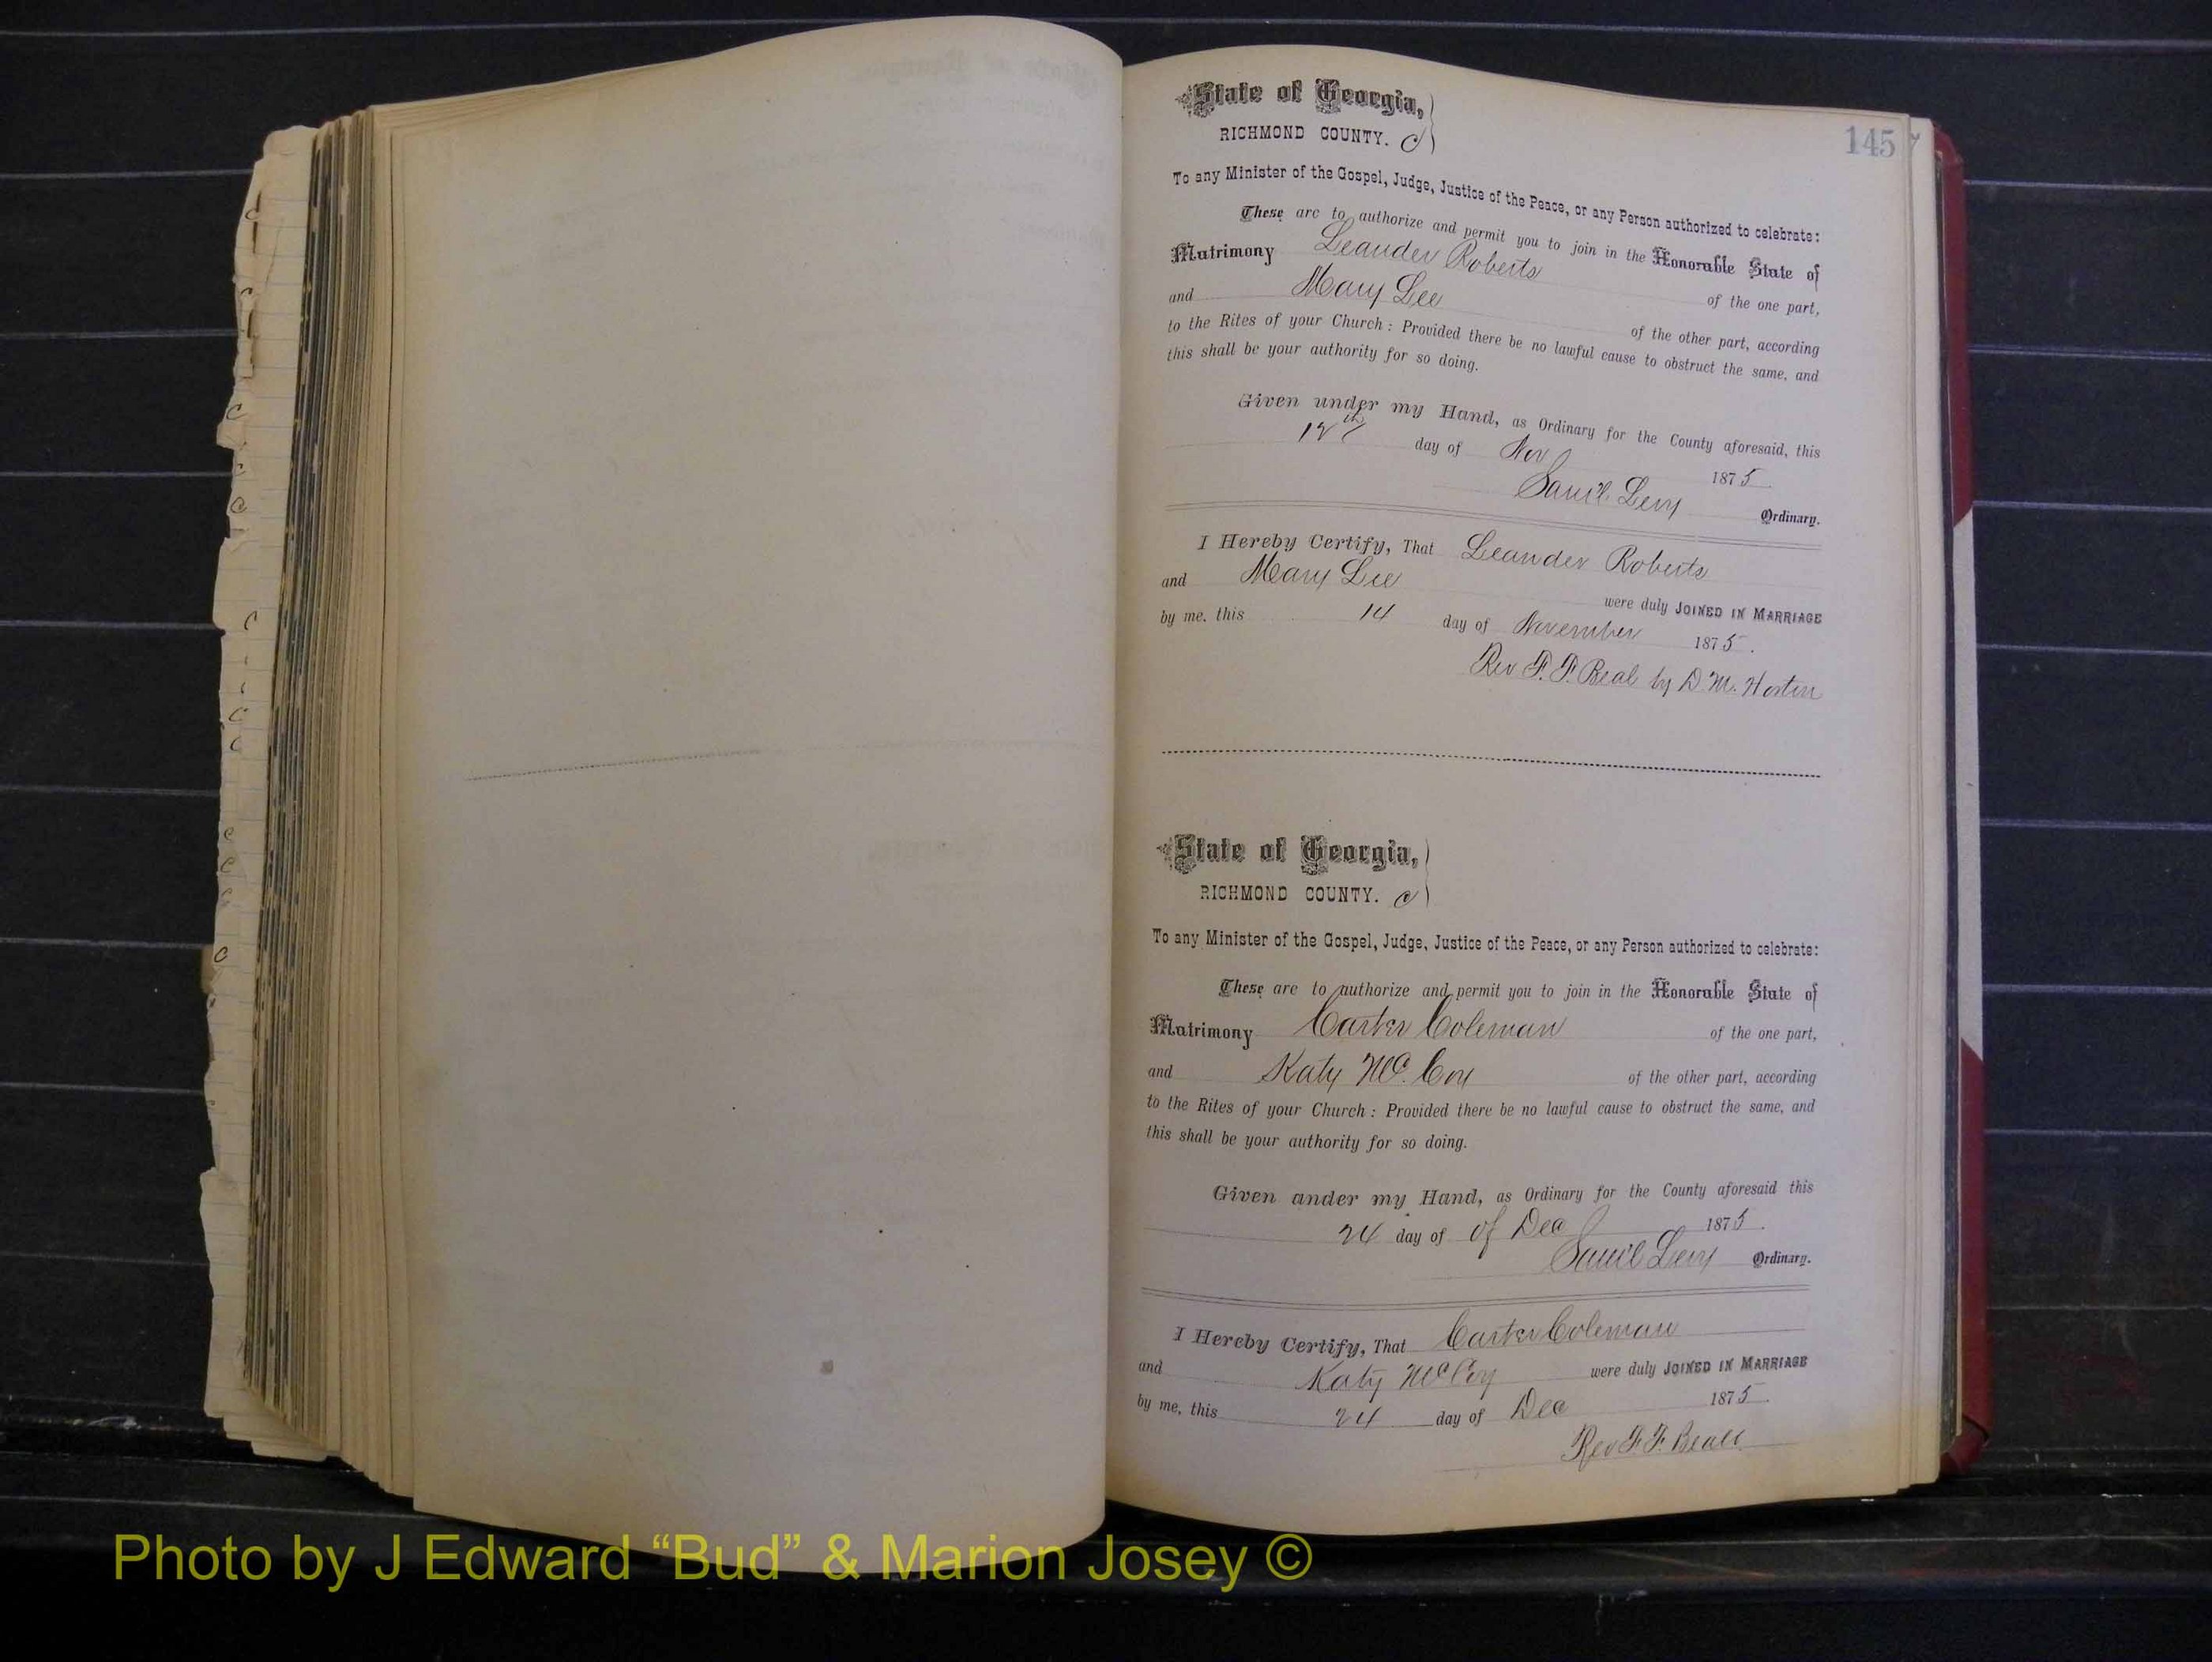 145
State of Georgia,
RICHMOND COUNTY. C
To any Minister of the Gospel, Judge, Justice of the Peace, or any Person authorized to celebrate:
These are to authorize and permit you to join in the Honorable State of
Matrimony Leander Roberts of the one part,
and Mary Lee of the other part, according
to the Rites of your Church : Provided there be no lawful cause to obstruct the same, and
this shall be your authority for so doing.
Given under my Hand, as Ordinary for the County aforesaid, this
12th day of Nov 1875
Sam'l Levy Ordinary.
I Hereby Certify, That Leander Roberts
and Mary Lee were duly JOINED IN MARRIAGE
by me, this 14 day of November 1875.
Rev F. F. Beal by D. M. Horton
State of Georgia,
RICHMOND COUNTY. C
To any Minister of the Gospel, Judge, Justice of the Peace, or any Person authorized to celebrate:
These are to authorize and permit you to join in the Honorable State of
Matrimony Carter Coleman of the one part,
and Katy McCoy of the other part, according
to the Rites of your Church : Provided there be no lawful cause to obstruct the same, and
this shall be your authority for so doing.
Given under my Hand, as Ordinary for the County aforesaid this
24 day of of Dec 1875.
Sam'l Levy Ordinary.
I Hereby Certify, That Carter Coleman
and Katy McCoy were duly JOINED IN MARRIAGE
by me, this 24 day of Dec 1875.
Rev F. F. Beall
Photo by J Edward “Bud” & Marion Josey ©